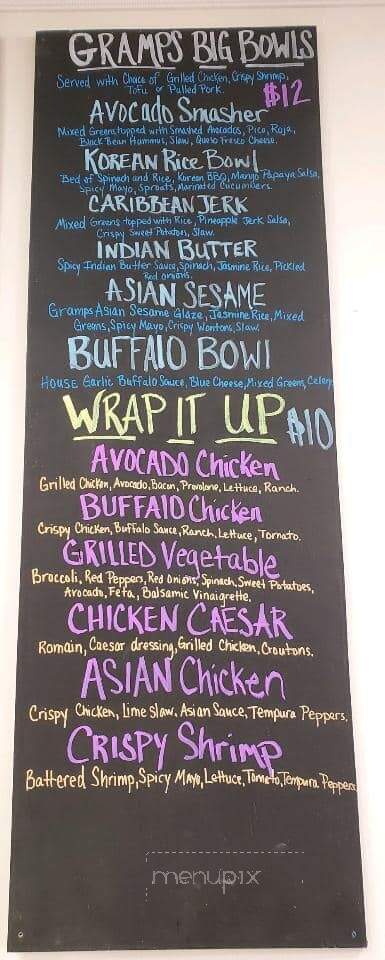 GRAMPS BIG BOWLS
Served with Choice of Grilled Chicken, Crispy Shrimp,
Tofu or Pulled Pork.
$12
AVOCADO Smasher
Mixed Greens topped with Smashed Avocados, Pico, Roja,
Black Bean Hummus, Slaw, Queso Fresco Cheese.
KOREAN Rice Bowl
Bed of Spinach and Rice, Korean BBQ, Mango Papaya Salsa,
Spicy Mayo, Sprouts, Marinated Cucumbers.
CARIBBEAN JERK
Mixed Greens topped with Rice, Pineapple Jerk Salsa,
Crispy Sweet Potatoes, Slaw.
INDIAN BUTTER
Spicy Indian Butter Sauce, Spinach, Jasmine Rice, Pickled
Red onions.
ASIAN SESAME
Gramps Asian Sesame Glaze, Jasmine Rice, Mixed
Greens, Spicy Mayo, Crispy Wontons, Slaw.
BUFFAlO BOWl
HOUSE Garlic Buffalo Sauce, Blue Cheese, Mixed Greens, Celery
WRAP IT UP $10
AVOCADO Chicken
Grilled Chicken, Avocado, Bacon, Provolone, Lettuce, Ranch.
BUFFAlO Chicken
Crispy Chicken, Buffalo Sauce, Ranch, Lettuce, Tomato.
GRILLED Vegetable
Broccoli, Red Peppers, Red Onions, Spinach, Sweet Potatoes,
Avocado, Feta, Balsamic Vinaigrette.
CHICKEN CAESAR
Romain, Caesar dressing, Grilled Chicken, Croutons.
ASIAN Chicken
Crispy Chicken, Lime Slaw, Asian Sauce, Tempura Peppers.
CRISPY Shrimp
Battered Shrimp, Spicy Mayo, Lettuce, Tomato, Tempura Peppers
menupix